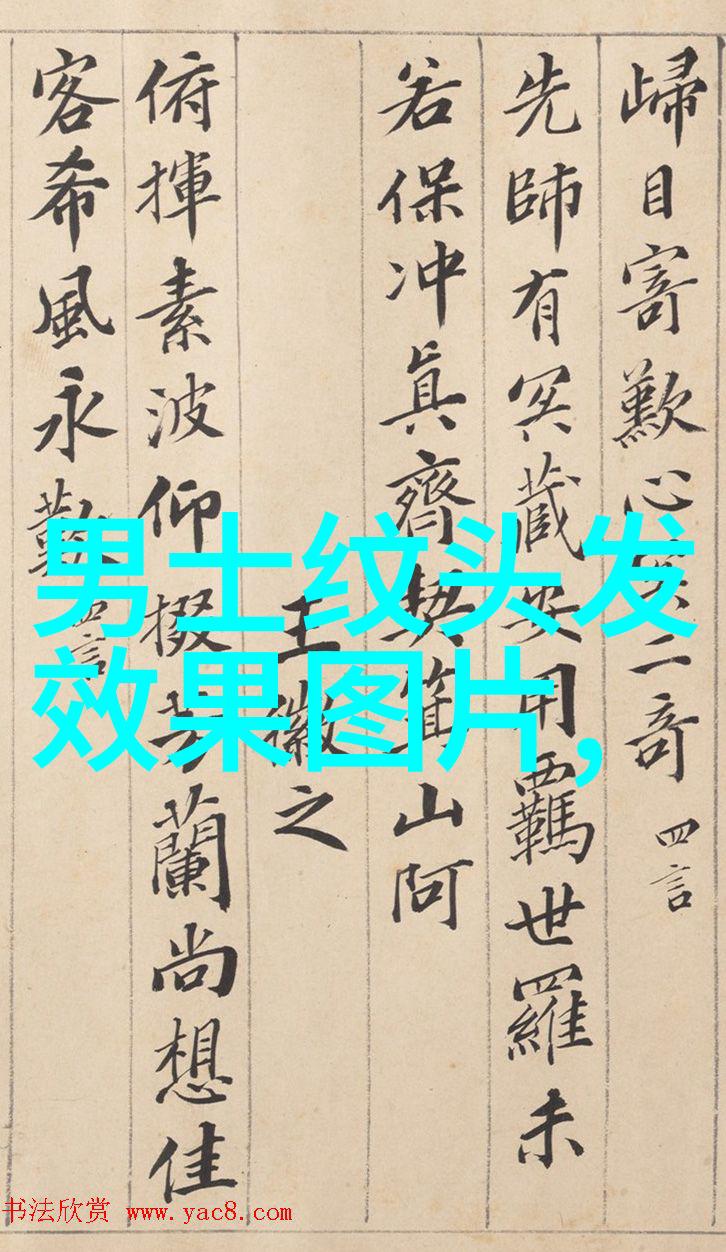 歸目寄歎心冥二奇 四言
先師有冥藏安用羈世羅未
若保冲真齊契箕山阿
王徽之
俯揮素波仰掇芳蘭尚想佳
客希風永歎 四言
男士纹头发
效果图片,
书法欣赏 www.yac8.com